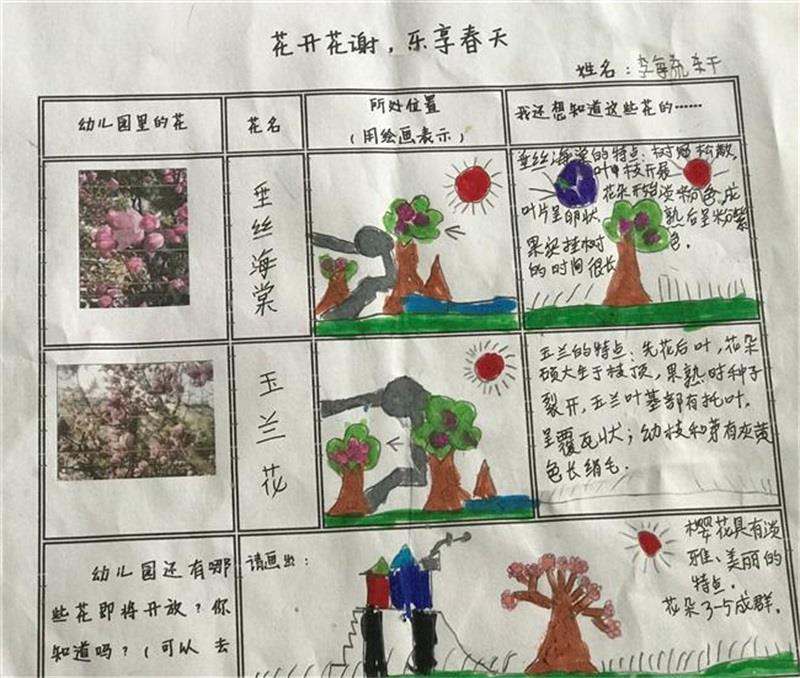 花开花谢，乐享春天
姓名：李
幼儿园里的花
花名
所处位置
（用绘画表示）
我还想知道这些花的……
垂丝海棠
垂丝海棠的特点：树姿松散，
叶中枝开展
花朵开始淡粉色，成
叶片呈卵状
熟后呈粉紫
果实挂树
色．
的时间很长
玉兰花
玉兰的特点：先花后叶，花朵
硕大生于枝顶，果熟时种子
裂开，玉兰叶基部有托叶，
呈覆瓦状；幼枝和芽有灰黄
色长绢毛．
幼儿园还有哪
些花即将开放？你
知道吗？（可以去
请画出：
樱花具有淡
雅、美丽的
特点．
花朵3-5成群．